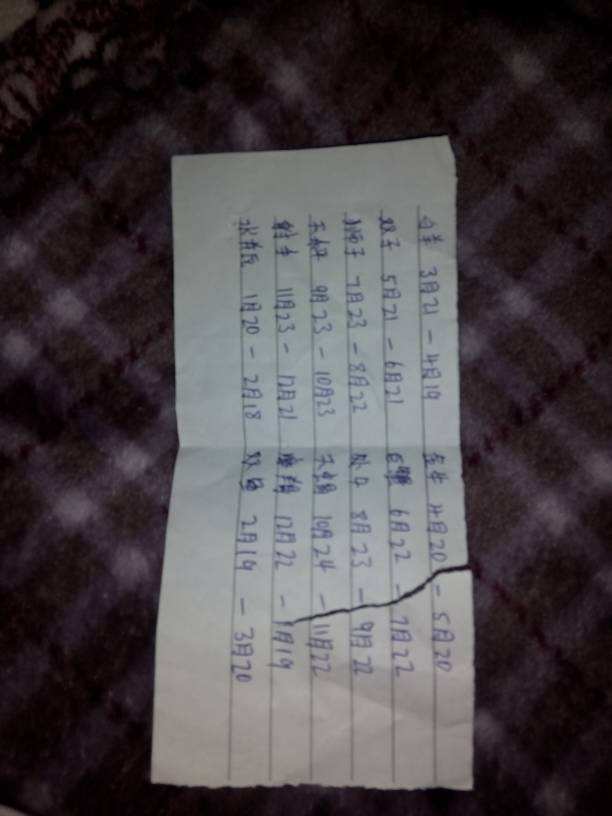 白羊 3月21 - 4月19 金牛 4月20 - 5月20
双子 5月21 - 6月21 巨蟹 6月22 - 7月22
狮子 7月23 - 8月22 处女 8月23 - 9月22
天秤 9月23 - 10月23 天蝎 10月24 - 11月22
射手 11月23 - 12月21 摩羯 12月22 - 1月19
水瓶 1月20 - 2月18 双鱼 2月19 - 3月20